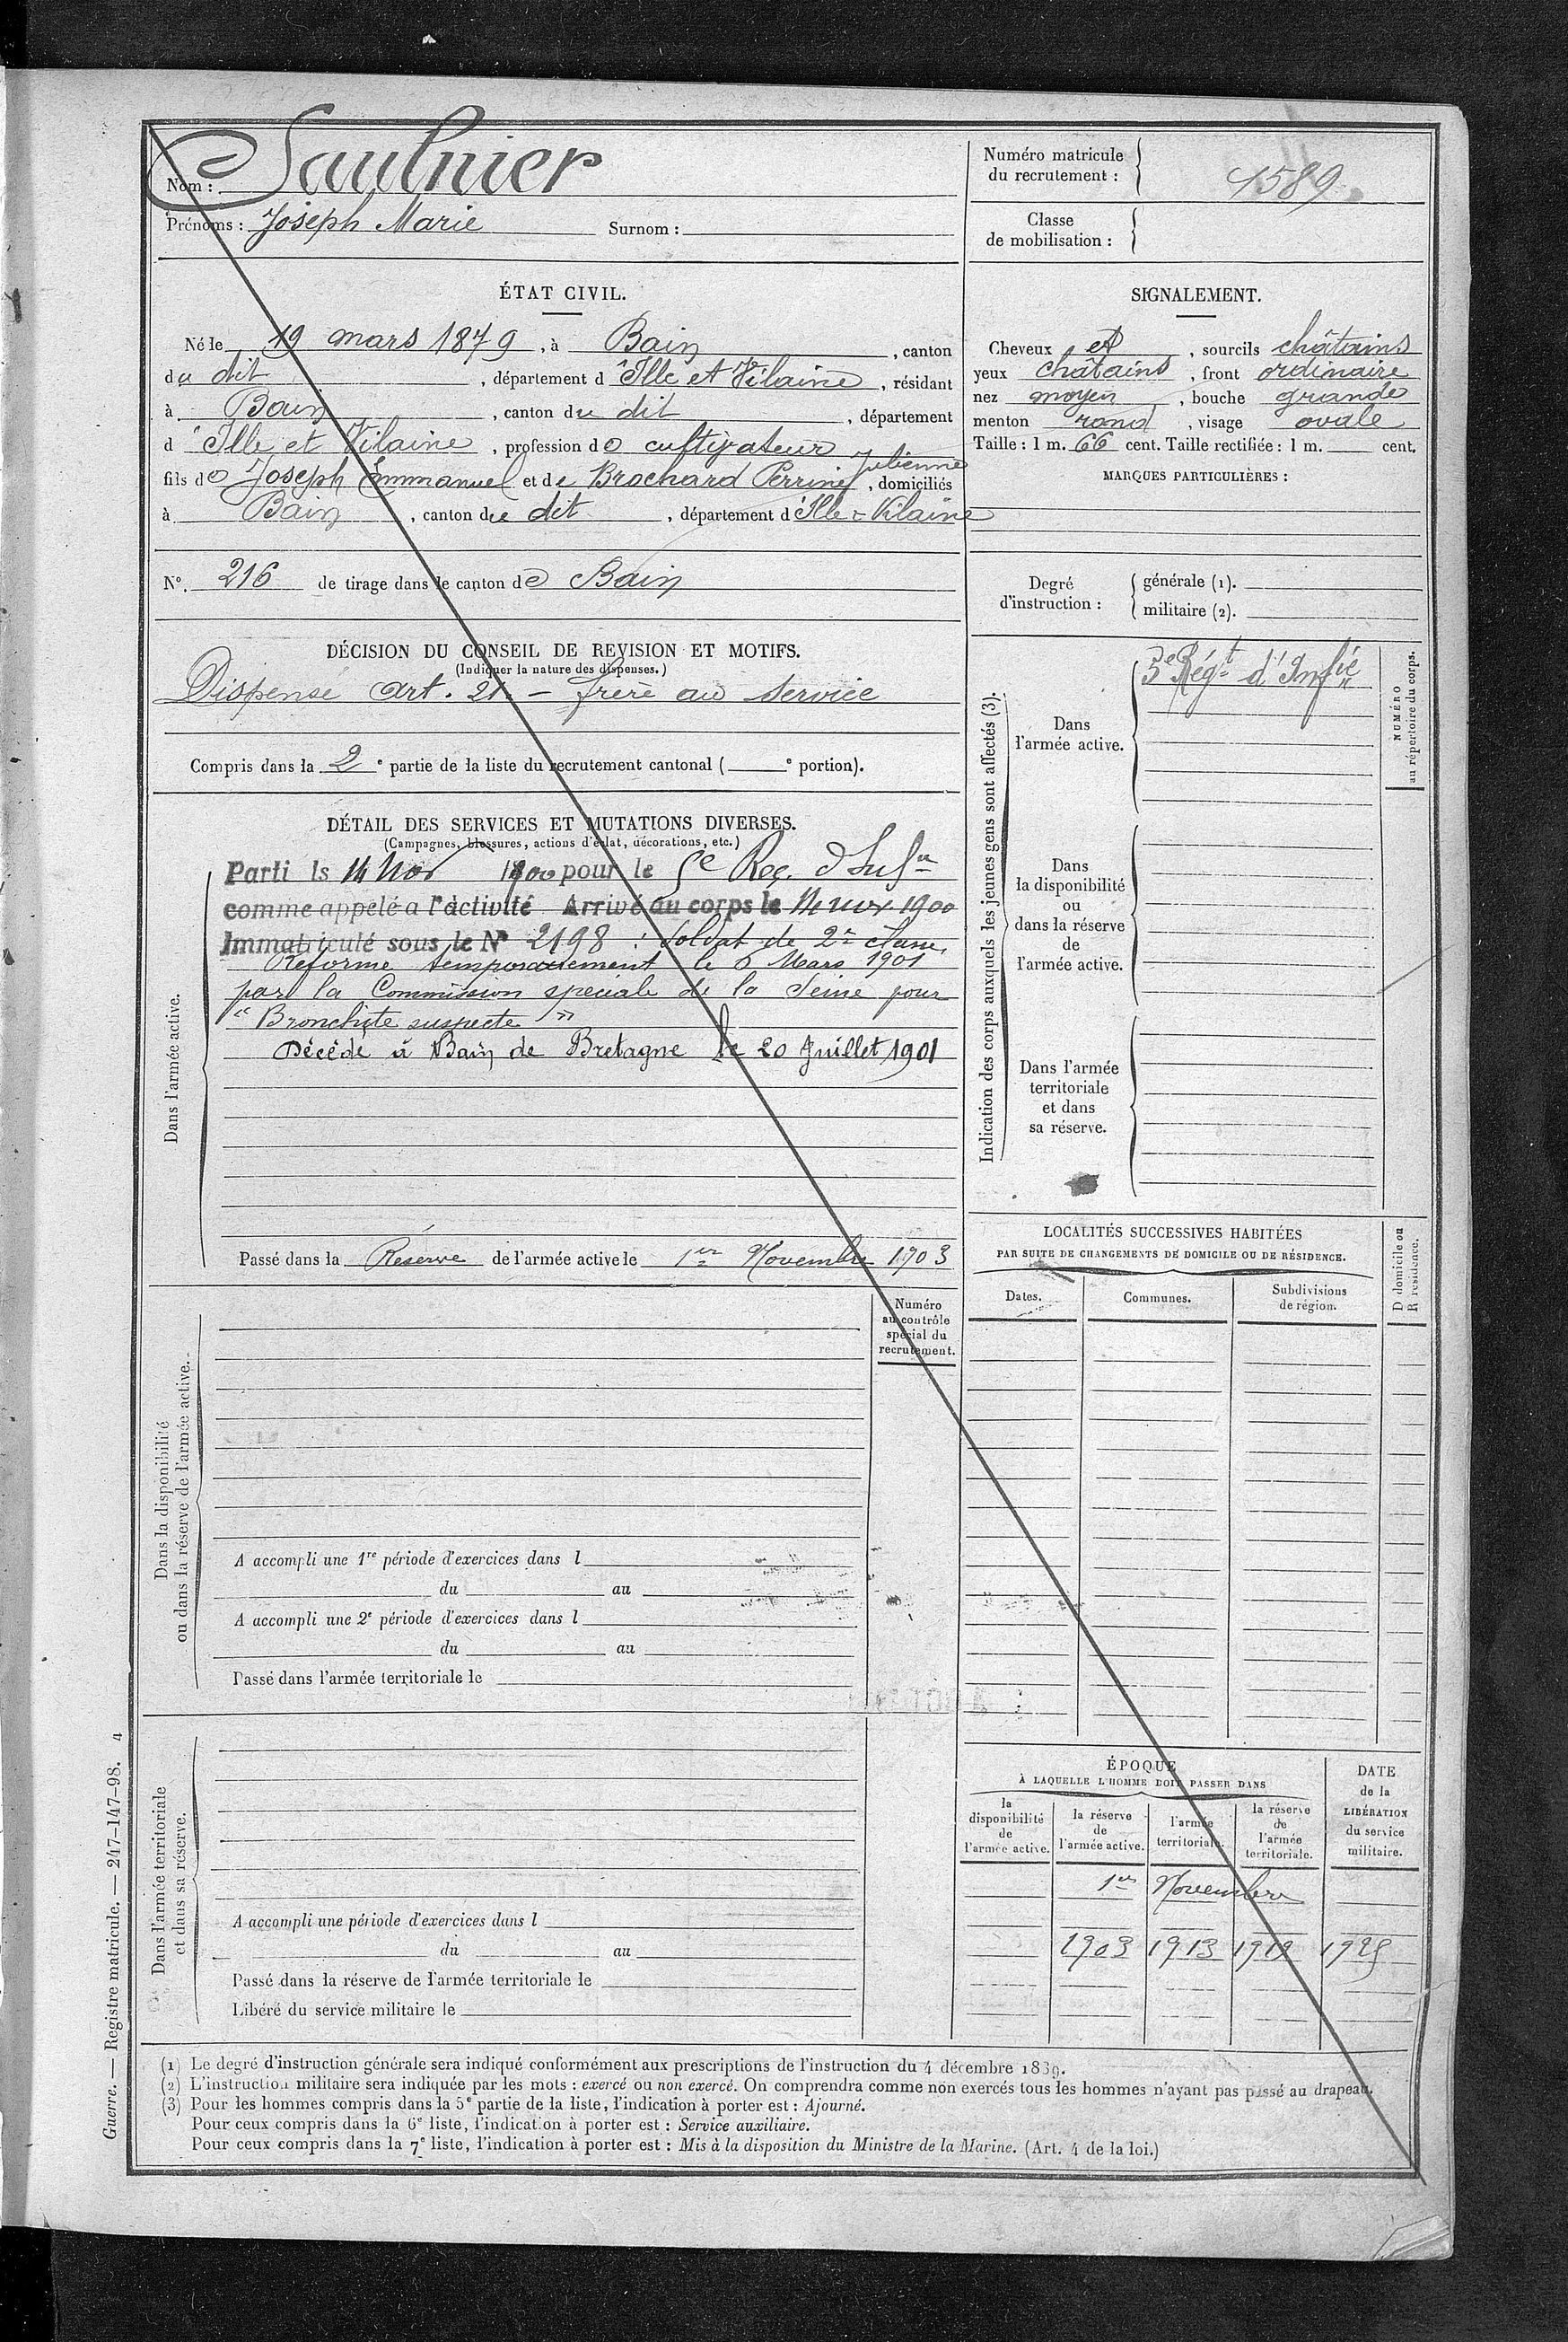 Nom : Saulnier
Prénoms : Joseph Marie Surnom :
ÉTAT CIVIL.
Né le 19 mars 1879, à Bain, canton
du dit, département d'Ille et Vilaine, résidant
à Bain, canton du dit, département
d'Ille et Vilaine, profession de cultivateur
fils de Joseph Emmanuel et de Brochard Perrine Julienne, domiciliés
à Bain, canton du dit, département d'Ille & Vilaine
N°. 216 de tirage dans le canton de Bain
DÉCISION DU CONSEIL DE REVISION ET MOTIFS.
(Indiquer la nature des dispenses.)
Dispensé art. 21. – frère au service
Compris dans la 2e partie de la liste du recrutement cantonal ( e portion).
DÉTAIL DES SERVICES ET MUTATIONS DIVERSES.
(Campagnes, blessures, actions d'éclat, décorations, etc.)
Dans l'armée active.
Parti le 14 Nov 1900 pour le 5e Reg. d'Infie
comme appelé a l'activité Arrivé au corps le 14 nov. 1900
Immatriculé sous le N° 2198 : Soldat de 2e classe
Réformé temporairement le 6 Mars 1901
par la Commission spéciale de la Seine pour
"Bronchite suspecte"
Décédé à Bain de Bretagne le 20 Juillet 1901
Passé dans la Réserve de l'armée active le 1er Novembre 1903
Numéro
au contrôle
spécial du
recrutement.
Dans la disponibilité
ou dans la réserve de l'armée active.
A accompli une 1re période d'exercices dans l
du au
A accompli une 2e période d'exercices dans l
du au
Passé dans l'armée territoriale le
Dans l'armée territoriale
et dans sa réserve.
A accompli une période d'exercices dans l
du au
Passé dans la réserve de l'armée territoriale le
Libéré du service militaire le
Numéro matricule
du recrutement : 1589
Classe
de mobilisation :
SIGNALEMENT.
Cheveux et, sourcils châtains
yeux châtains, front ordinaire
nez moyen, bouche grande
menton rond, visage ovale
Taille : 1 m. 66 cent. Taille rectifiée : 1 m. cent.
MARQUES PARTICULIÈRES :
Degré
d'instruction :
générale (1).
militaire (2).
Indication des corps auxquels les jeunes gens sont affectés (3).
Dans
l'armée active.
5e Régt d'Infie
NUMÉRO
au répertoire du corps.
Dans
la disponibilité
ou
dans la réserve
de
l'armée active.
Dans l'armée
territoriale
et dans
sa réserve.
LOCALITÉS SUCCESSIVES HABITÉES
PAR SUITE DE CHANGEMENTS DE DOMICILE OU DE RÉSIDENCE.
D domicile ou
R résidence.
Dates. Communes. Subdivisions
de région.
ÉPOQUE
À LAQUELLE L'HOMME DOIT PASSER DANS
la
disponibilité
de
l'armée active.
la réserve
de
l'armée active.
l'armée
territoriale.
la réserve
de
l'armée
territoriale.
DATE
de la
LIBÉRATION
du service
militaire.
1er Novembre
1903 1913 1919 1925
(1) Le degré d'instruction générale sera indiqué conformément aux prescriptions de l'instruction du 4 décembre 1889.
(2) L'instruction militaire sera indiquée par les mots : exercé ou non exercé. On comprendra comme non exercés tous les hommes n'ayant pas passé au drapeau.
(3) Pour les hommes compris dans la 5e partie de la liste, l'indication à porter est : Ajourné.
Pour ceux compris dans la 6e liste, l'indication à porter est : Service auxiliaire.
Pour ceux compris dans la 7e liste, l'indication à porter est : Mis à la disposition du Ministre de la Marine. (Art. 4 de la loi.)
Guerre. — Registre matricule. — 247-147-98. 4